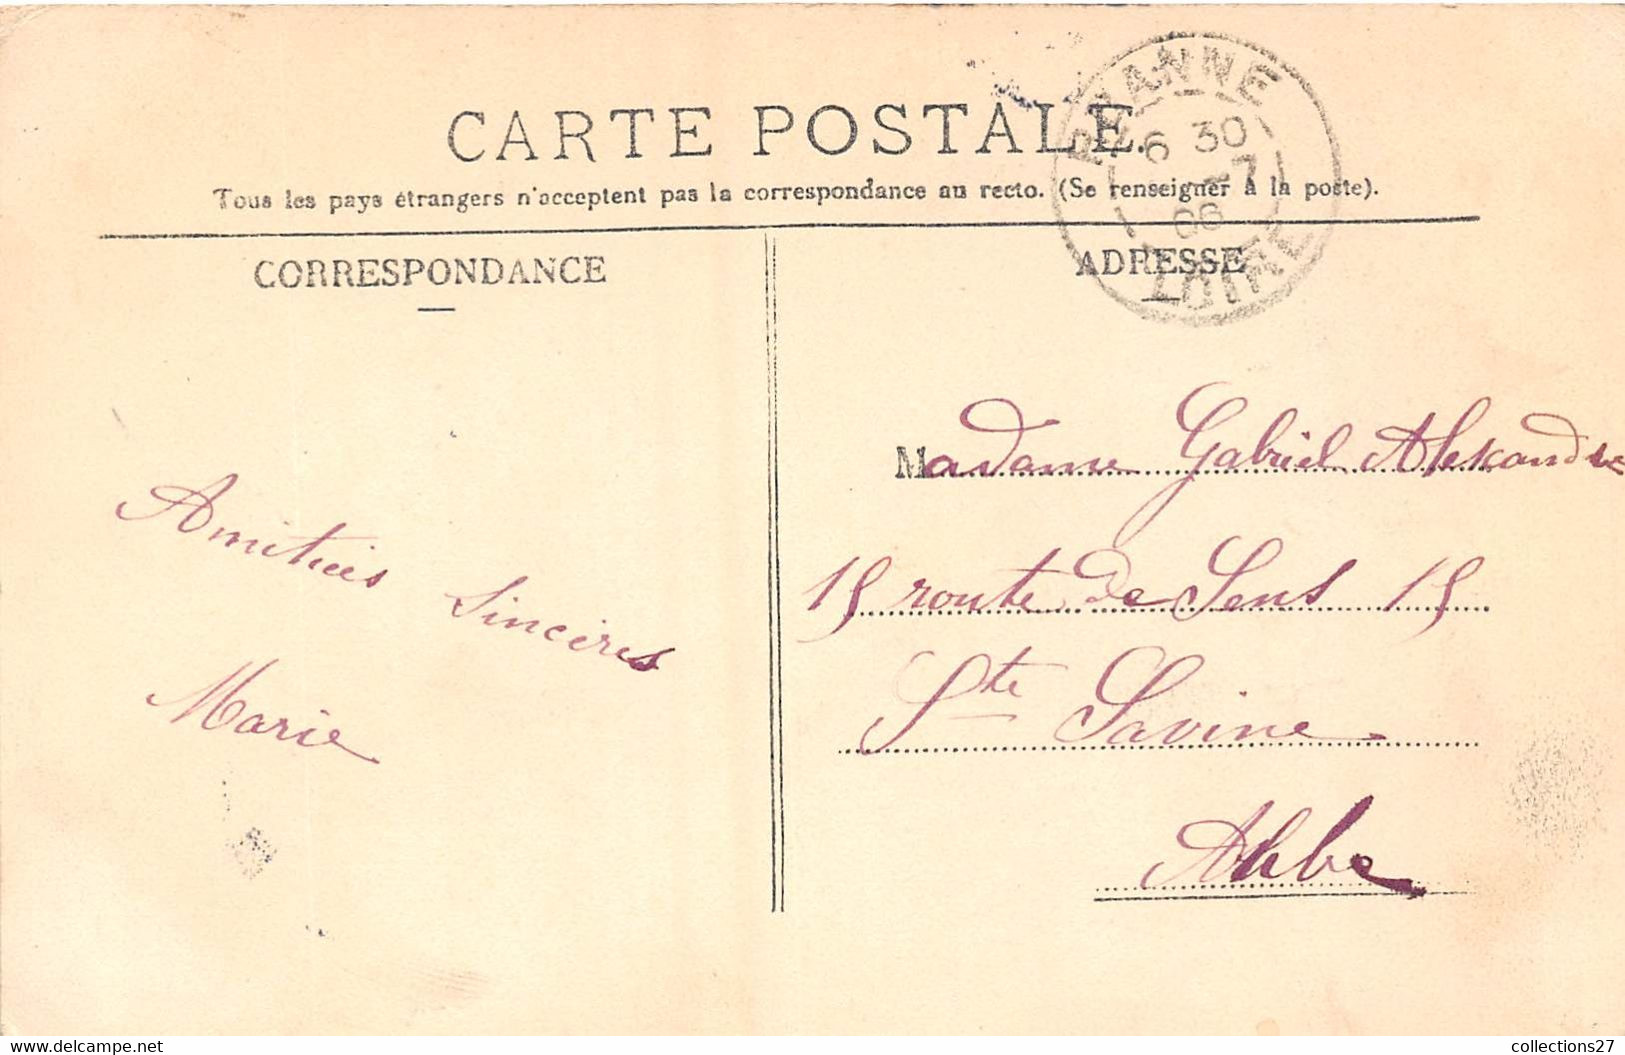 CARTE POSTALE.
Tous les pays étrangers n'acceptent pas la correspondance au recto. (Se renseigner à la poste).
CORRESPONDANCE
ADRESSE
ROANNE
6 30
27
LOIRE
Amitiés
Sincères
Marie
Madame Gabriel Alexandre
15 route de Sens 15
Ste Savine
Aube
collections27